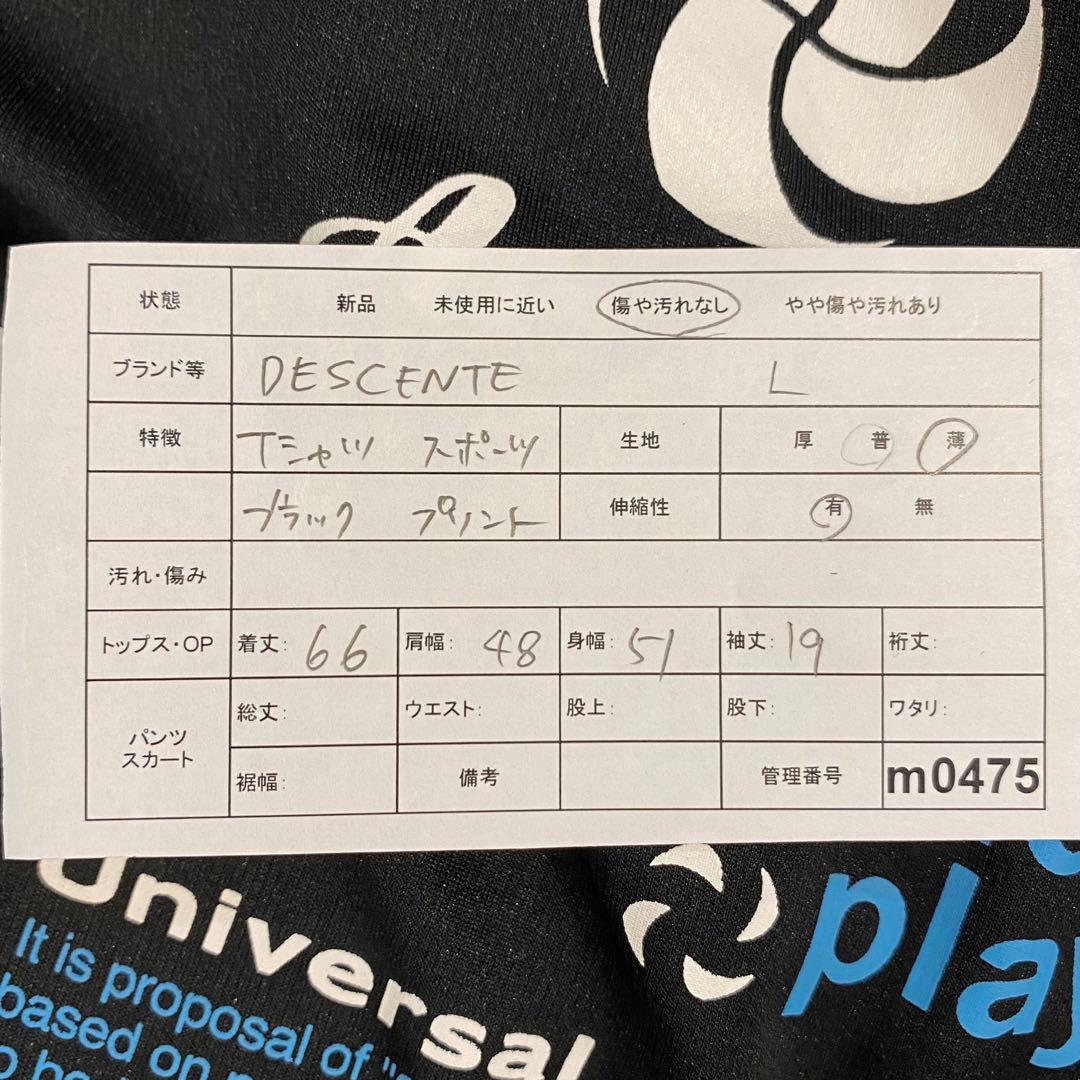 状態 新品 未使用に近い 傷や汚れなし やや傷や汚れあり
ブランド等 DESCENTE L
特徴 Tシャツ スポーツ 生地 厚 普 薄
ブラック プリント 伸縮性 有 無
汚れ・傷み -
トップス・OP 着丈: 66 肩幅: 48 身幅: 51 袖丈: 19 裄丈:
パンツ スカート 総丈: ウエスト: 股上: 股下: ワタリ:
裾幅: 備考 管理番号 m0475
Universal
It is proposal of
based on
play